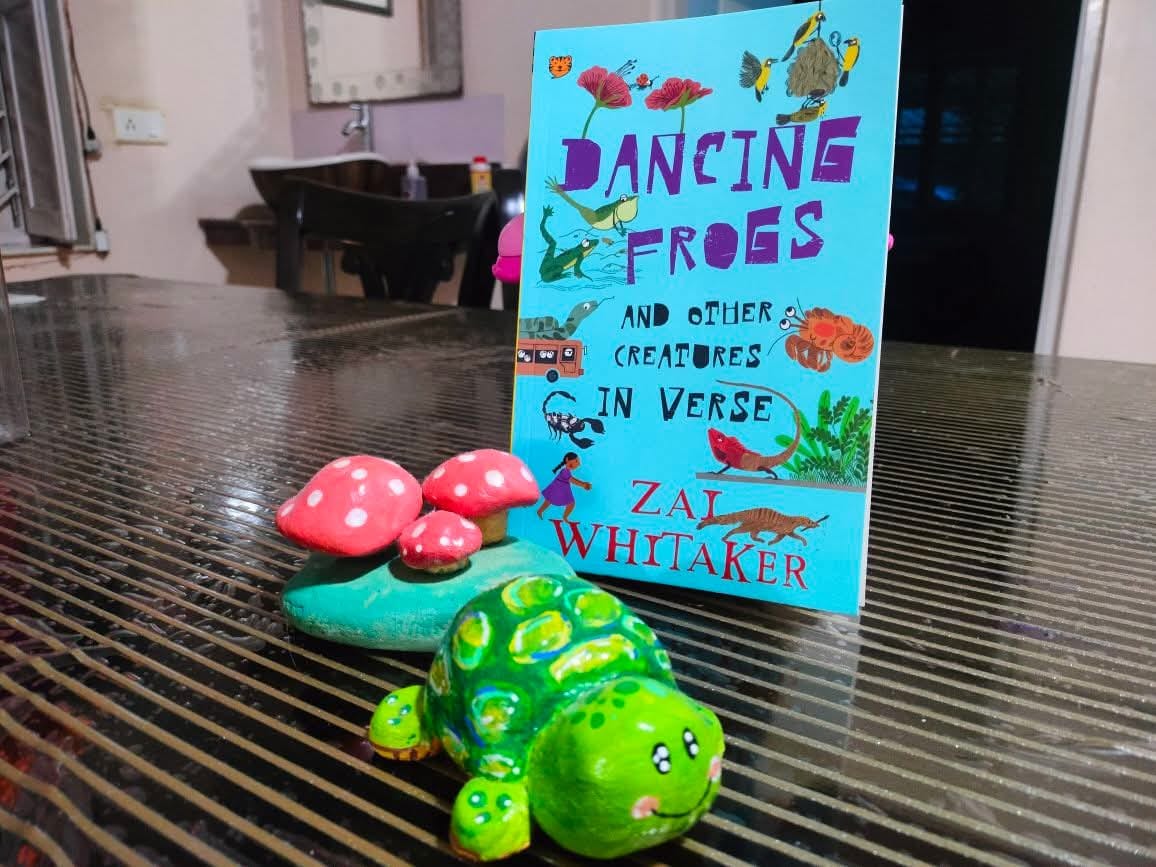 DANCING
FROGS
AND OTHER
CREATURES
IN VERSE
ZAI
WHITAKER